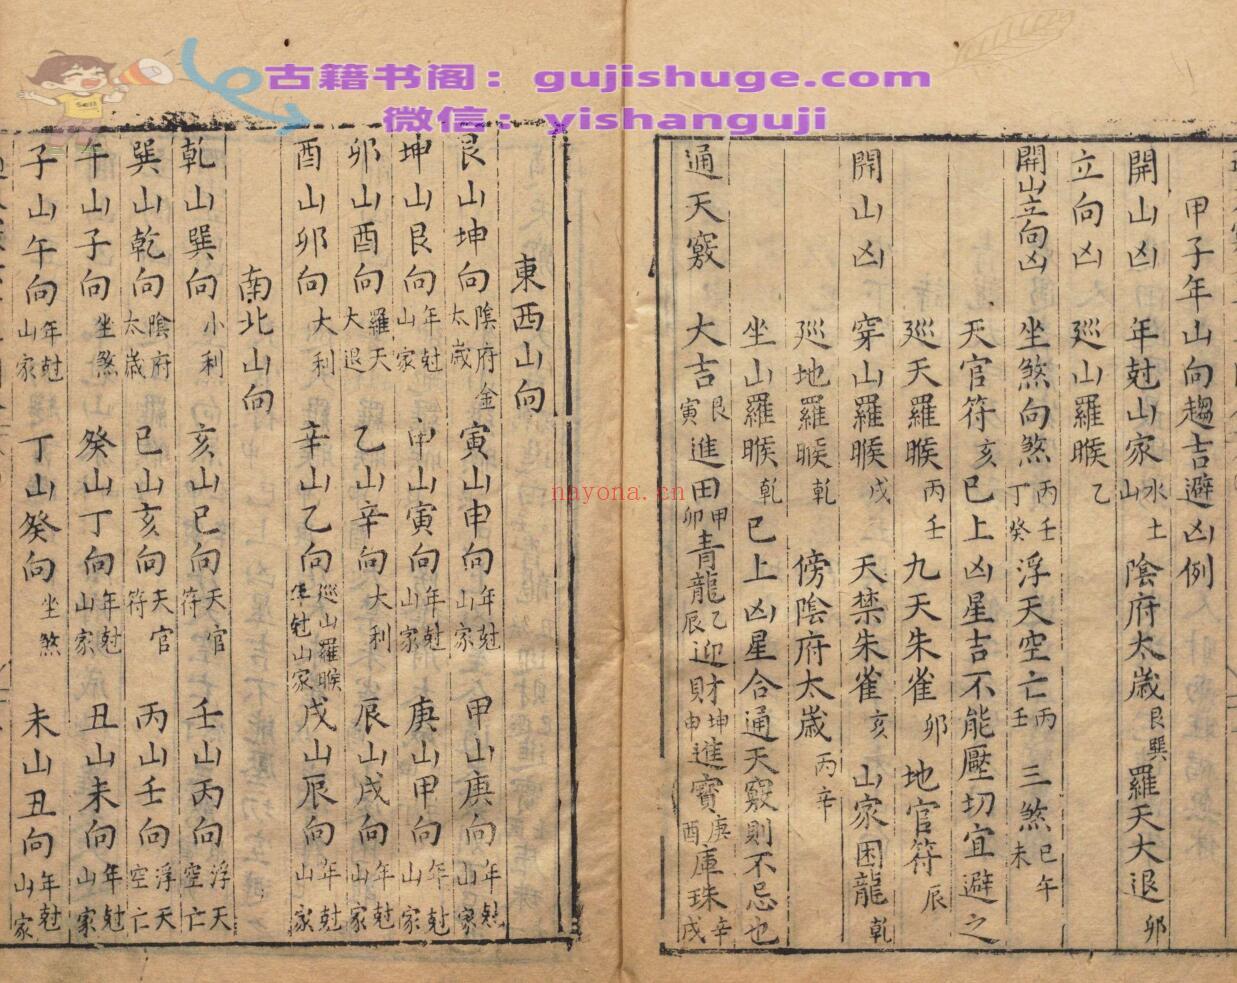 古籍书阁：gujishuge.com
微信：yishanguji
nayona.cn
甲子年山向趨吉避凶例
開山凶 年尅山家水土山 陰府太歲艮巽 羅天大退卯
立向凶 巡山羅睺乙
開山立向凶 坐煞向煞丙壬丁癸 浮天空亡丙壬 三煞巳午未
天官符亥 已上凶星吉不能壓切宜避之
巡天羅睺丙壬 九天朱雀卯 地官符辰
開山凶 穿山羅睺戌 天禁朱雀亥 山家困龍乾
巡地羅睺乾 傍陰府太歲丙辛
坐山羅睺乾 已上凶星合通天竅則不忌也
通天竅 大吉艮寅 進田甲卯 青龍乙辰 迎財坤申 進寶庚酉 庫珠辛戌
東西山向
艮山坤向陰府太歲金 寅山申向年尅山家 甲山庚向年尅山家
坤山艮向年尅山家 申山寅向年尅山家 庚山甲向年尅山家
卯山酉向羅天大退 乙山辛向大利 辰山戌向年尅山家
酉山卯向大利 辛山乙向巡山羅睺年尅山家 戌山辰向年尅山家
南北山向
乾山巽向小利 亥山巳向天官符 壬山丙向浮天空亡
巽山乾向陰府太歲 巳山亥向天官符 丙山壬向浮天空亡
午山子向坐煞 癸山丁向年尅山家 丑山未向年尅山家
子山午向年尅山家 丁山癸向坐煞 未山丑向年尅山家